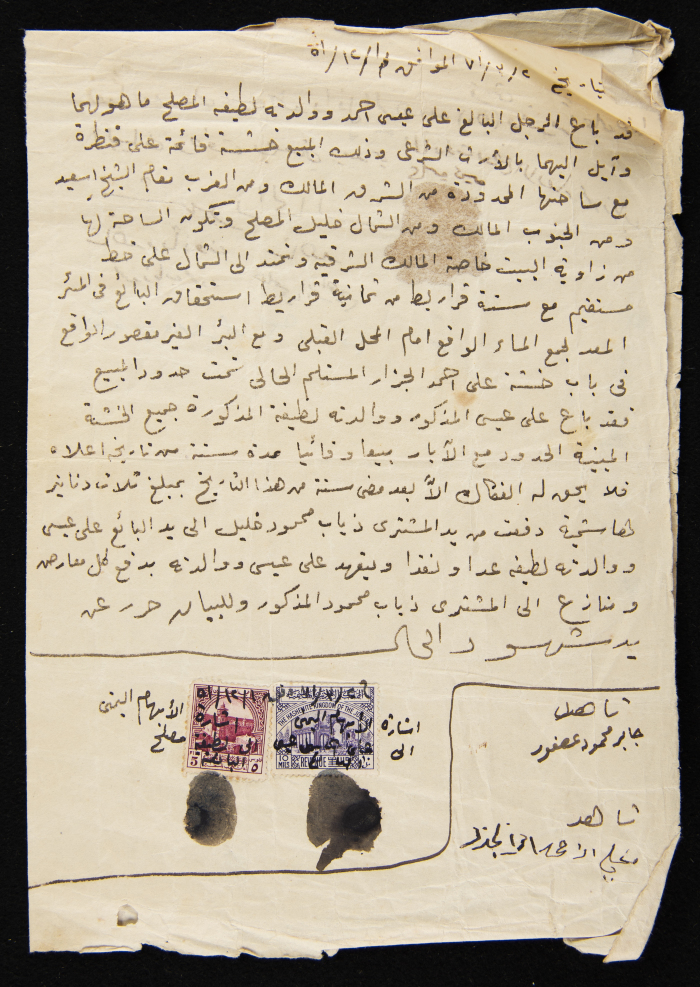 بتاريخ ٧١/٣/٢ الموافق ٥١/١٢/١
قد باع الرجل البالغ علي عيسى احمد ووالدته لطيفه المصلح ما هو لهما
وآيل اليهما بالأرث الشرعي وذلك المبيع خشة قائمة على قنطرة
مع ساحتها المحدودة من الشرق المالك ومن الغرب مقام الشيخ اسعيد
ومن الجنوب المالك ومن الشمال خليل المصلح وتكون الساحة لها
من زاوية البيت خاصة المالك الشرقيه وتمتد الى الشمال على خط
مستقيم مع ستة قراريط من ثمانية قراريط استحقاق البائع في البئر
المعد لجمع الماء الواقع امام المحل القبلي ومع البئر الغير مقصور الواقع
في باب خشة علي احمد الجزار المستلم الحالي تمت حدود المبيع
فقد باع علي عيسى المذكور ووالدته لطيفة المذكورة جميع الخشة
المبينة الحدود مع الآبار بيعا وفائيا مدة سنة من تاريخه اعلاه
فلا يحق له الفكاك الاّ بعد مضي سنة من هذا التاريخ بمبلغ ثلاث دنانير
هاشمية دفعت من يد المشتري ذياب محمود خليل الى يد البائع علي عيسى
ووالدته لطيفه عدا ونقدا ويتعهد علي عيسى ووالدته بدفع كل معارض
ومنازع الى المشتري ذياب محمود المذكور وللبيان حرر عن
يد شهود الحال
شاهد
جابر محمود عصفور
شاهد
علي الاحمد الجزار
اشارة الى
الأبهام اليمنى
علي عيسى
الأبهام اليمنى
اشارة
الى لطيفة
مصلح
البائعة
THE HASHEMITE KINGDOM OF THE JORDAN
REVENUE
10 MILS
5